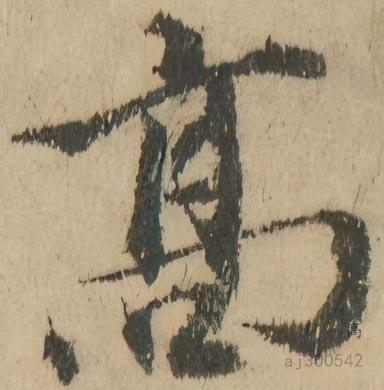 高
高
aj300542